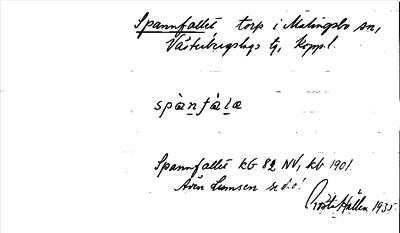 Spannfallet torp i Malingsbo sn,
Västerbergslags tg, Koppl.
spànfàlæ
Spannfallet kG 82 NV, kb 1901.
Även Lumsen se d.o!
Gösta Hallén 1935.